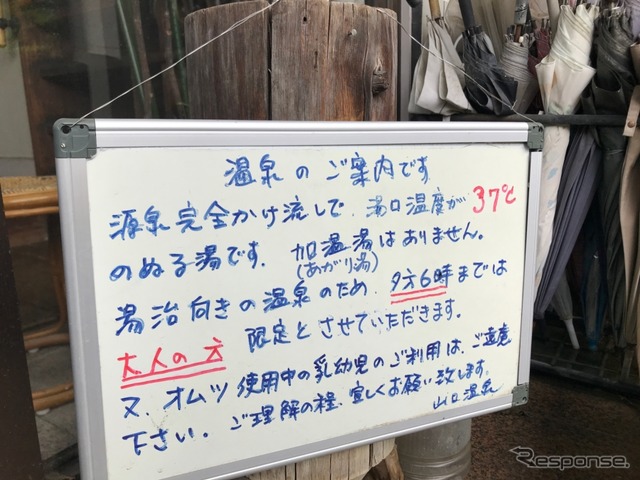 温泉のご案内です
源泉完全かけ流しで、湯口温度が37℃
のぬる湯です。加温湯はありません。
(あがり湯)
湯治向きの温泉のため、夕方6時までは
大人の方 限定とさせていただきます。
又、オムツ使用中の乳幼児のご利用は、ご遠慮
下さい。ご理解の程、宜しくお願い致します。
山口温泉
Response.